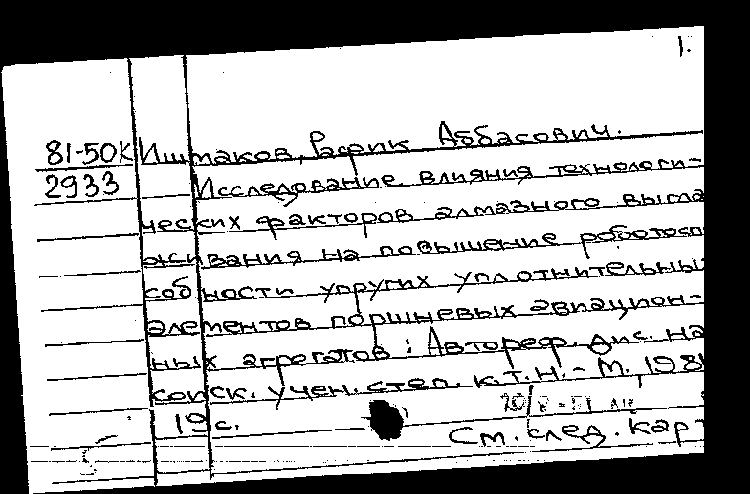 1.
81-50К Иштаков, Рафик Аббасович.
2933 Исследование влияния технологи-
ческих факторов алмазного выгла
живания на повышение работосп
собности упругих уплотнительны
элементов поршневых авиацион-
ных агрегатов : Автореф. дис. на
соиск. учен. степ. к.т.н. - М., 1981
19 с.
См. след. карт